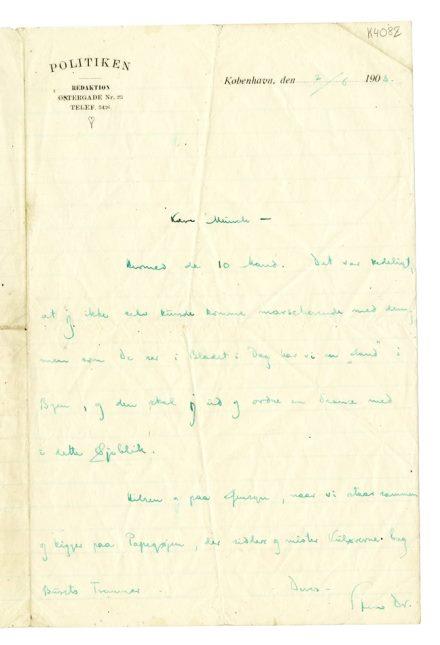 K4082
POLITIKEN
REDAKTION
ØSTERGADE Nr. 25
TELEF. 3426
København, den 7/6 1903.
Kære Munch —
Hermed de 10 Mand. Det var kedeligt,
at jeg ikke selv kunde komme marscherende med dem,
men som De ser i Bladet i Dag har vi en i
Byen, og den skal jeg ud og ordne en med
i dette Øjeblik.
Hilsen og paa Gensyn, naar vi staar sammen
og kigger paa Papegøjen, der sidder og mister bag
Burets Trammer.
Deres —